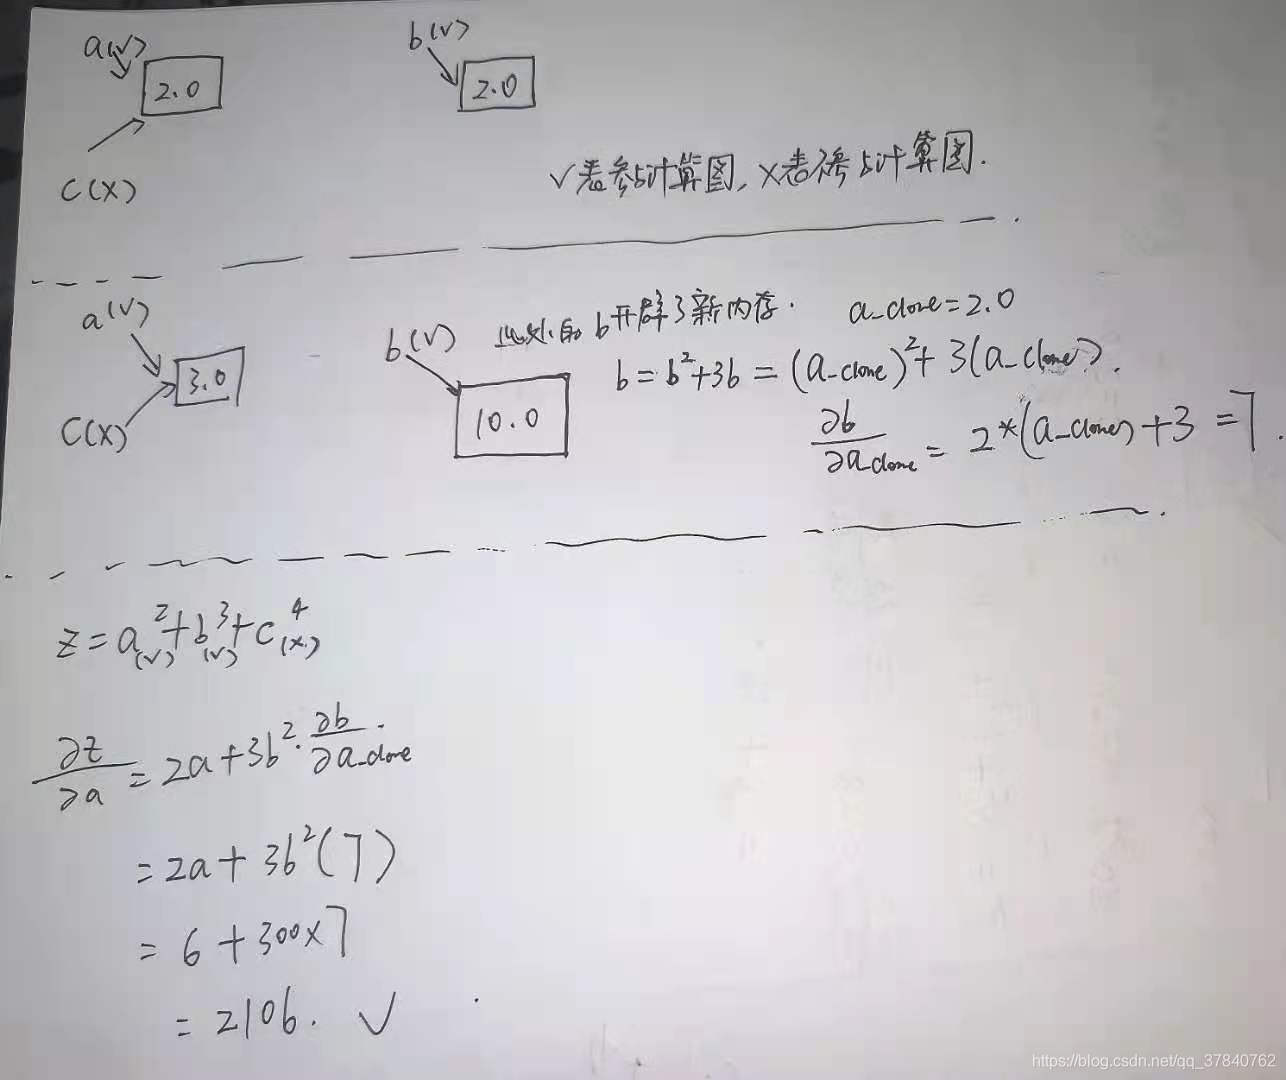 a(√) b(√)
2.0 2.0
C(X)
√表参与计算图, X表不参与计算图.
a(√)
C(X)
3.0
b(√) 此处的b开辟了新内存. a_clone=2.0
10.0
b=b²+3b=(a_clone)²+3(a_clone).
∂b/∂a_clone = 2*(a_clone)+3 =7.
z=a²+b³+c⁴
(√) (√) (X)
∂z/∂a = 2a+3b²·∂b/∂a_clone.
=2a+3b²(7)
= 6+300×7
= 2106. √
https://blog.csdn.net/qq_37840762